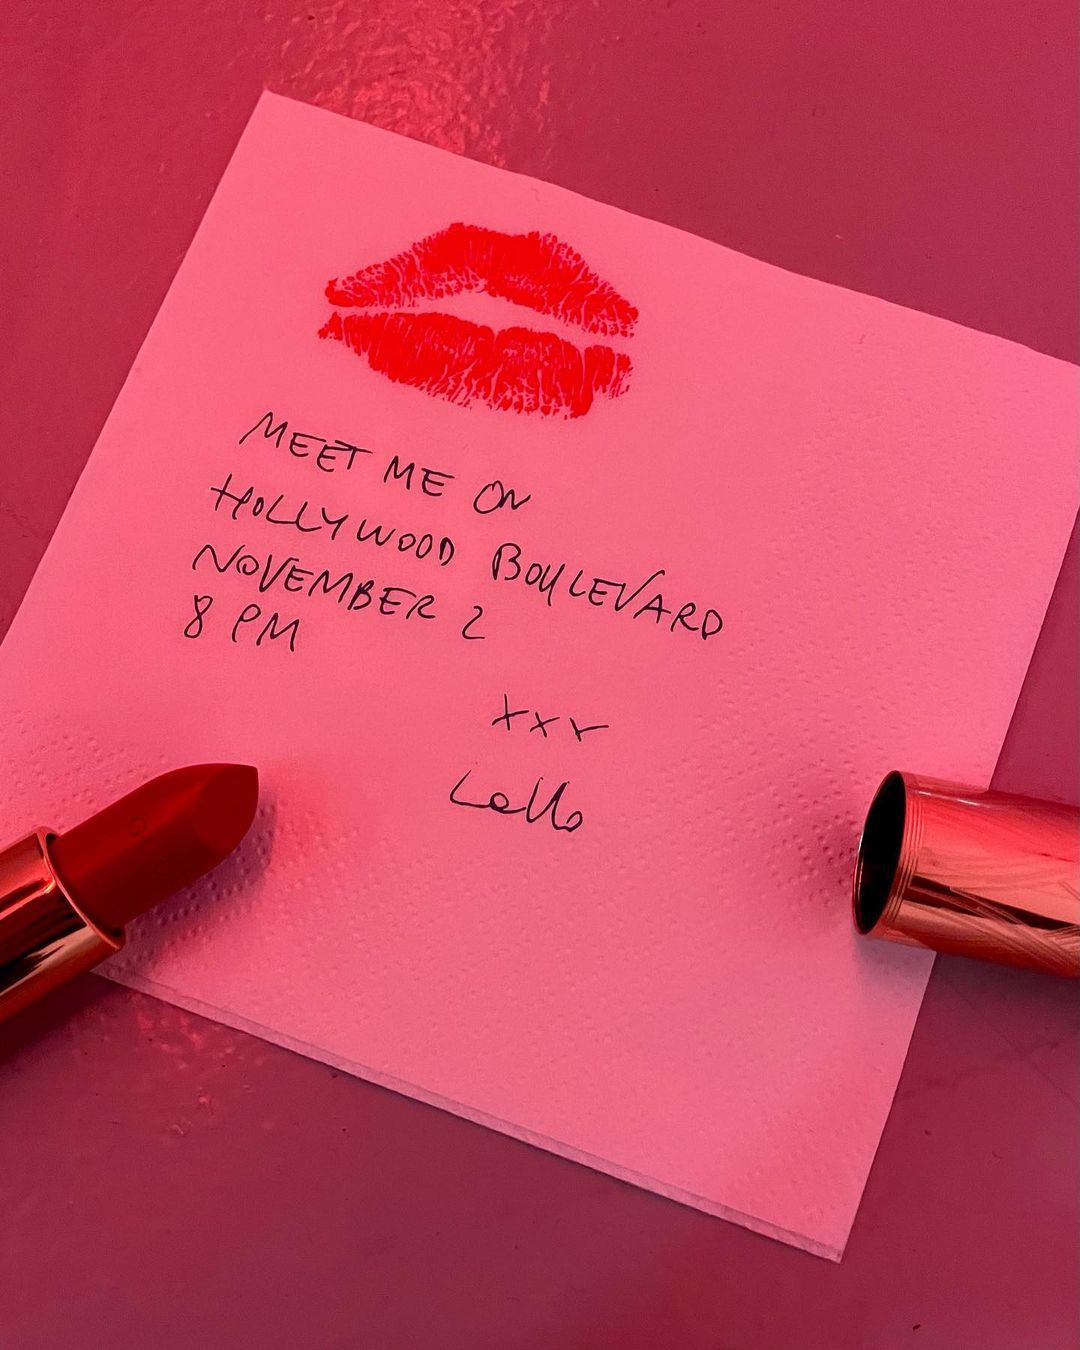 MEET ME ON
HOLLYWOOD BOULEVARD
NOVEMBER 2
8 PM
xxx
Lallo